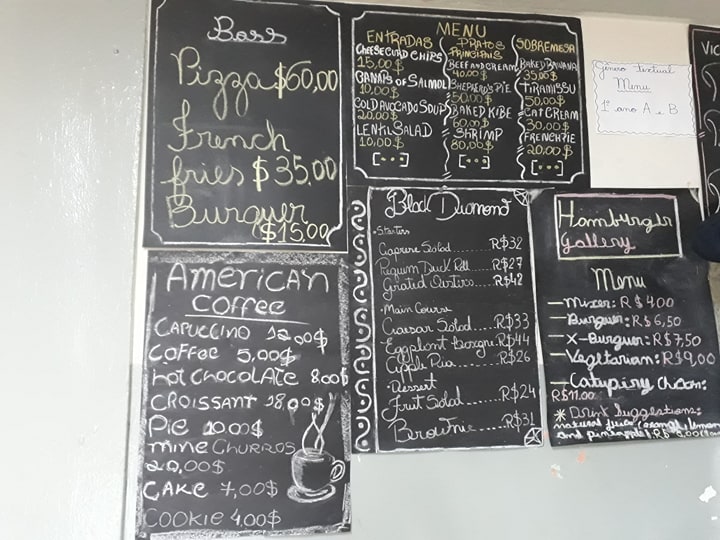 Boss
Pizza $60,00
French
fries $35.00
Burguer
$15,00
MENU
ENTRADAS
CHEESE CURD CHIPS
15,00$
BANAPS OF SALMOL
10,00$
COLD AVOCADO SOUP
20,00$
LENTIL SALAD
10,00$
[...]
PRATOS
PRINCIPAIS
BEEF AND CREAM
40,00$
SHEPHERD'S PIE
50,00$
BAKED KIBE
60,00$
SHRIMP
80,00$
[...]
SOBREMESA
BAKED BANANA
35,00$
TIRAMISSU
50,00$
CAT CREAM
30,00$
FRENCH PIE
20,00$
[...]
Gênero textual
Menu
1º ano A e B
AMERICAN
COFFEE
CAPUCCINO 12,00$
COFFEE 5,00$
HOT CHOCOLATE 8,00$
CROISSANT 18,00$
PIE 10,00$
MINE CHURROS
20,00$
CAKE 7,00$
COOKIE 4,00$
Black Diamond
Starters
Caprese Salad.....R$32
Duck Roll.....R$27
R$42
Main Course
Caesar Salad....R$33
Eggplant R$44
Apple R$26
Dessert
Fruit Salad.....R$24
Brownie....R$31
Hamburger
Gallery
Menu
— Mixer: R$ 4,00
— Burguer: R$ 6,50
— X-Burguer: R$ 7,50
— Vegetarian: R$ 9,00
— Catupiry
R$ 11.00
* Drink Suggestions:
natural juice
and pineapple) R$
VIC